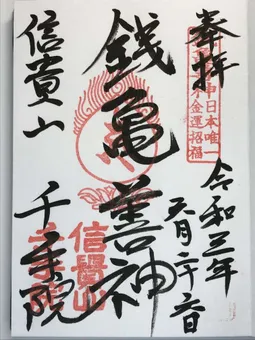 奉拝
日本唯一
金運招福
令和三年
六月二十六日
銭亀善神
信貴山
千手院
信貴山
千手院